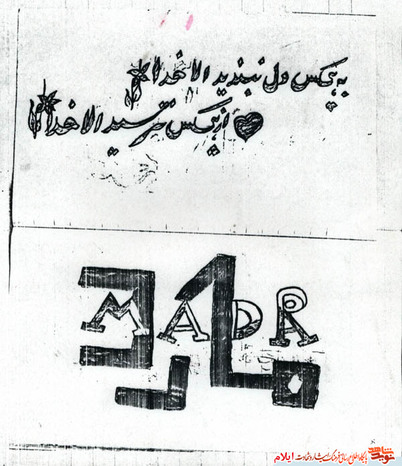 به هیچکس دل نبندید الا خدا
از هیچکس نترسید الا خدا
مادر
MADR
نوید شاهد
پایگاه اطلاع رسانی فرهنگ ایثار و شهادت ایلام